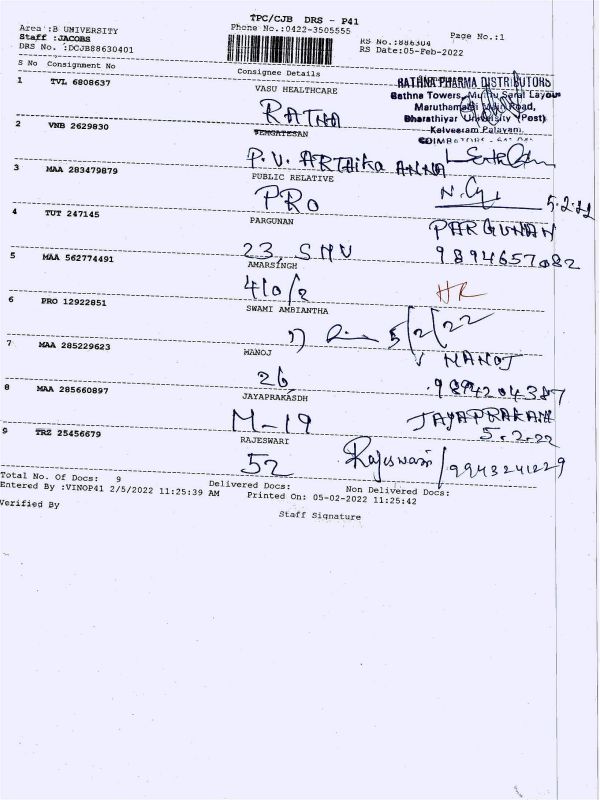 TPC/CJB DRS - P41
Area :B UNIVERSITY
Phone No.:0422-3505555
Staff :JACOBS
RS No.:886304
Page No.:1
DRS No. :DCJB88630401
RS Date:05-Feb-2022
S No Consignment No
Consignee Details
1 TVL 6808637
VASU HEALTHCARE
RATHNA PHARMA DISTRIBUTORS
Rathna Towers, Muthu Layour
Maruthamalai Main Road,
Bharathiyar University (Post)
Kalveeram Palayam,
RATHNA
2 VNB 2629830
VENGATESAN
P.V. ARTHIKA ANNA
3 MAA 283479879
PUBLIC RELATIVE
PRO
5.2.22
4 TUT 247145
PARGUNAN
PARGUNAN
23, SMV
9894657082
5 MAA 562774491
AMARSINGH
410/2
HR
6 PRO 12922851
SWAMI AMBIANTHA
5/2/22
7 MAA 285229623
MANOJ
MANOJ
26
9894204387
8 MAA 285660897
JAYAPRAKASDH
M-19
JAYAPRAKASH
5.2.22
9 TRZ 25456679
RAJESWARI
52
Rajeswari / 9943241229
Total No. Of Docs: 9
Delivered Docs:
Non Delivered Docs:
Entered By :VINOP41 2/5/2022 11:25:39 AM
Printed On: 05-02-2022 11:25:42
Verified By
Staff Signature